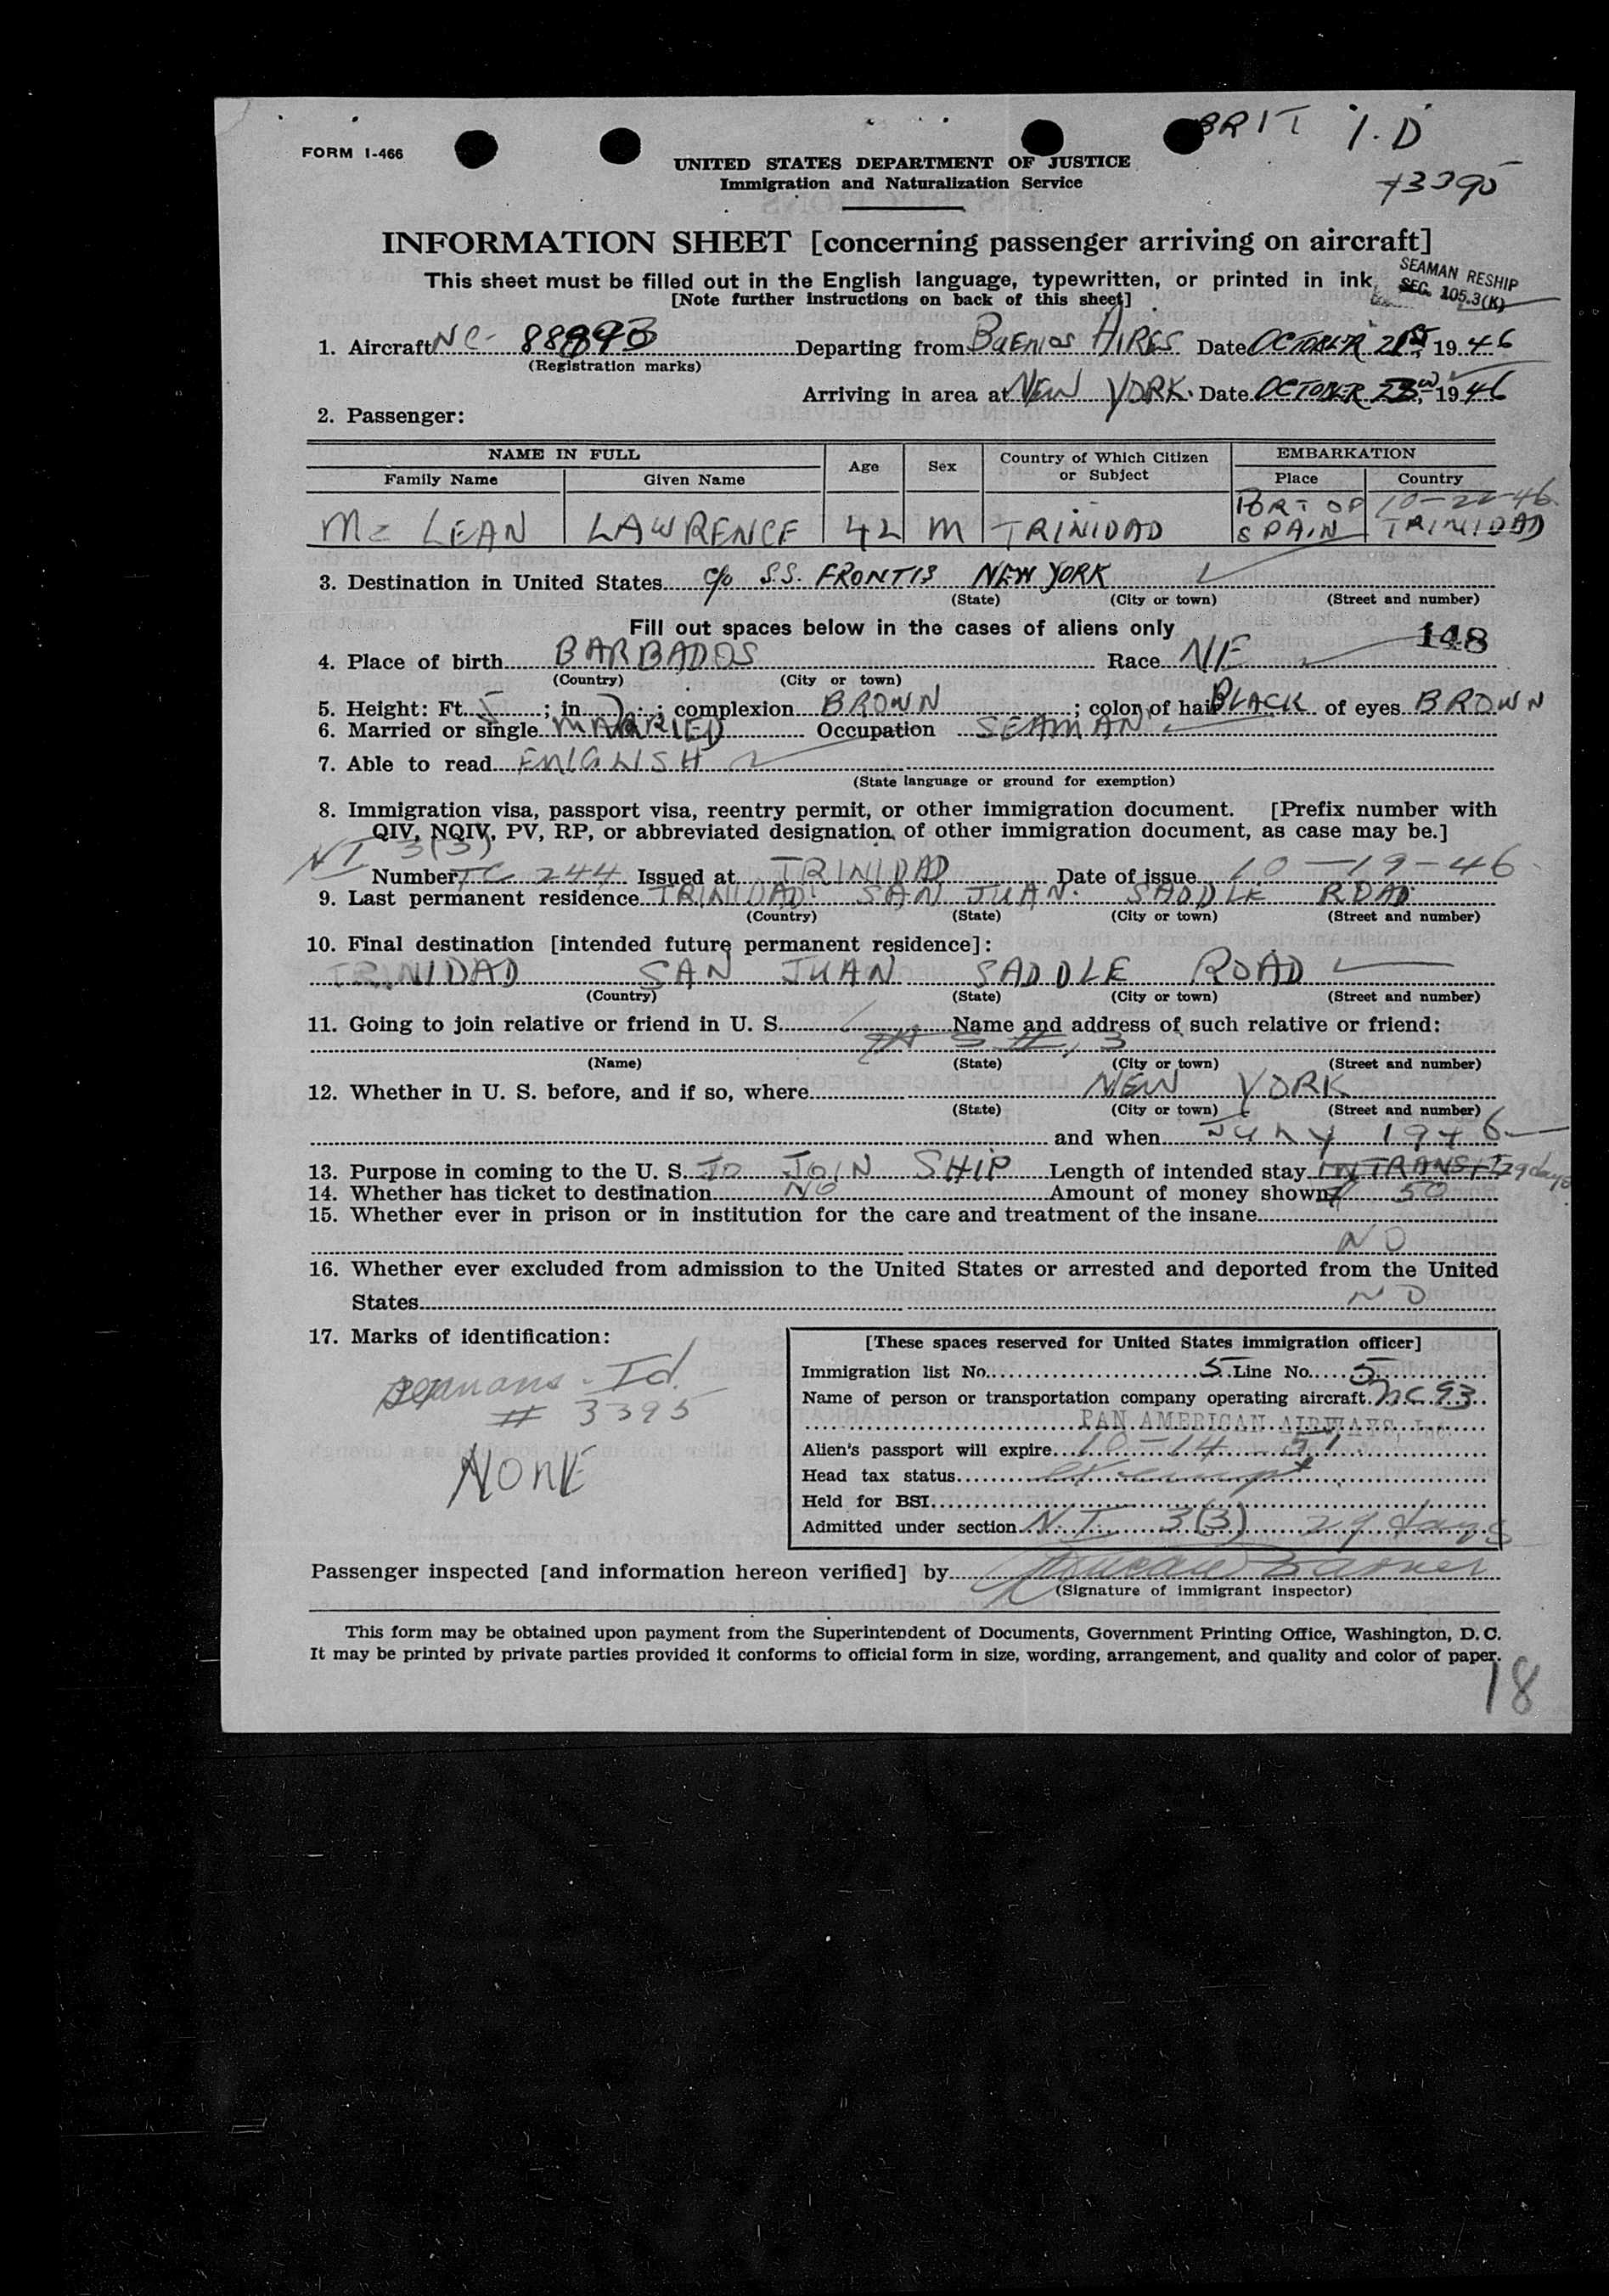 BRIT I.D
FORM I-466
#3395
UNITED STATES DEPARTMENT OF JUSTICE
Immigration and Naturalization Service
INFORMATION SHEET [concerning passenger arriving on aircraft]
This sheet must be filled out in the English language, typewritten, or printed in ink.
SEAMAN RESHIP
SEC. 105.3(K)
[Note further instructions on back of this sheet]
1. Aircraft NC- 88893 Departing from BUENOS AIRES Date OCTOBER 21ST, 1946
(Registration marks)
Arriving in area at NEW YORK. Date OCTOBER 23, 1946
2. Passenger:
NAME IN FULL Age Sex Country of Which Citizen or Subject EMBARKATION
Family Name Given Name Place Country
10-22-46
Mc LEAN LAWRENCE 42 M TRINIDAD PORT OF SPAIN TRINIDAD
3. Destination in United States c/o S.S. FRONTIS NEW YORK
(State) (City or town) (Street and number)
Fill out spaces below in the cases of aliens only
148
4. Place of birth BARBADOS Race NE
(Country) (City or town)
5. Height: Ft. 5; in 7; complexion BROWN; color of hair BLACK of eyes BROWN
6. Married or single MARRIED Occupation SEAMAN
7. Able to read ENGLISH
(State language or ground for exemption)
8. Immigration visa, passport visa, reentry permit, or other immigration document. [Prefix number with
QIV, NQIV, PV, RP, or abbreviated designation of other immigration document, as case may be.]
NI 3(3)
Number TC 244 Issued at TRINIDAD Date of issue 10-19-46
9. Last permanent residence TRINIDAD. SAN JUAN. SADDLE ROAD
(Country) (State) (City or town) (Street and number)
10. Final destination [intended future permanent residence]:
TRINIDAD SAN JUAN SADDLE ROAD
(Country) (State) (City or town) (Street and number)
11. Going to join relative or friend in U. S. Name and address of such relative or friend:
(Name) (State) (City or town) (Street and number)
12. Whether in U. S. before, and if so, where NEW YORK
(State) (City or town) (Street and number)
and when JULY 1946
13. Purpose in coming to the U. S. TO JOIN SHIP Length of intended stay IN TRANSIT 29 days
14. Whether has ticket to destination NO Amount of money shown $ 50
15. Whether ever in prison or in institution for the care and treatment of the insane
NO
16. Whether ever excluded from admission to the United States or arrested and deported from the United
States NO
17. Marks of identification:
Seamans - Id.
# 3395
NONE
[These spaces reserved for United States immigration officer]
Immigration list No. 5 Line No. 5
Name of person or transportation company operating aircraft NC 93
PAN AMERICAN AIRWAYS, Inc.
Alien's passport will expire 10-14-51
Head tax status exempt
Held for BSI
Admitted under section N.I. 3(3) 29 days
Passenger inspected [and information hereon verified] by
(Signature of immigrant inspector)
This form may be obtained upon payment from the Superintendent of Documents, Government Printing Office, Washington, D. C.
It may be printed by private parties provided it conforms to official form in size, wording, arrangement, and quality and color of paper.
18